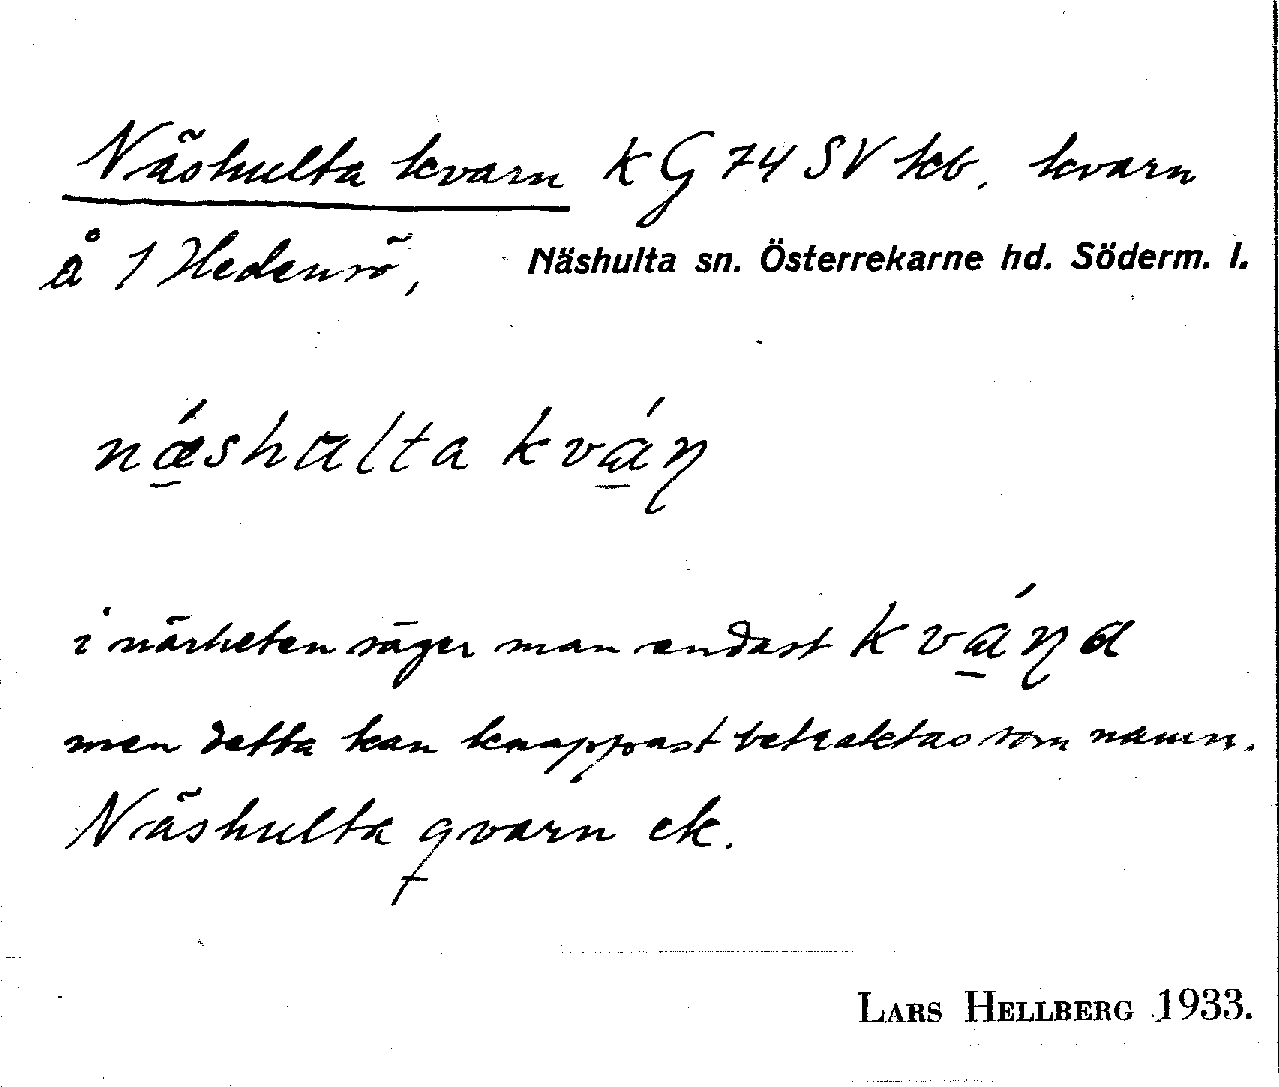 Näshulta kvarn KG 74 SV kb. kvarn
å 1 Hedensö, Näshulta sn. Österrekarne hd. Söderm. l.
nǽ̲shulta kvá̲ɳ
i närheten säger man endast kvá̲ɳa
men detta kan knappast betraktas som namn.
Näshulta qvarn ek.
LARS HELLBERG 1933.